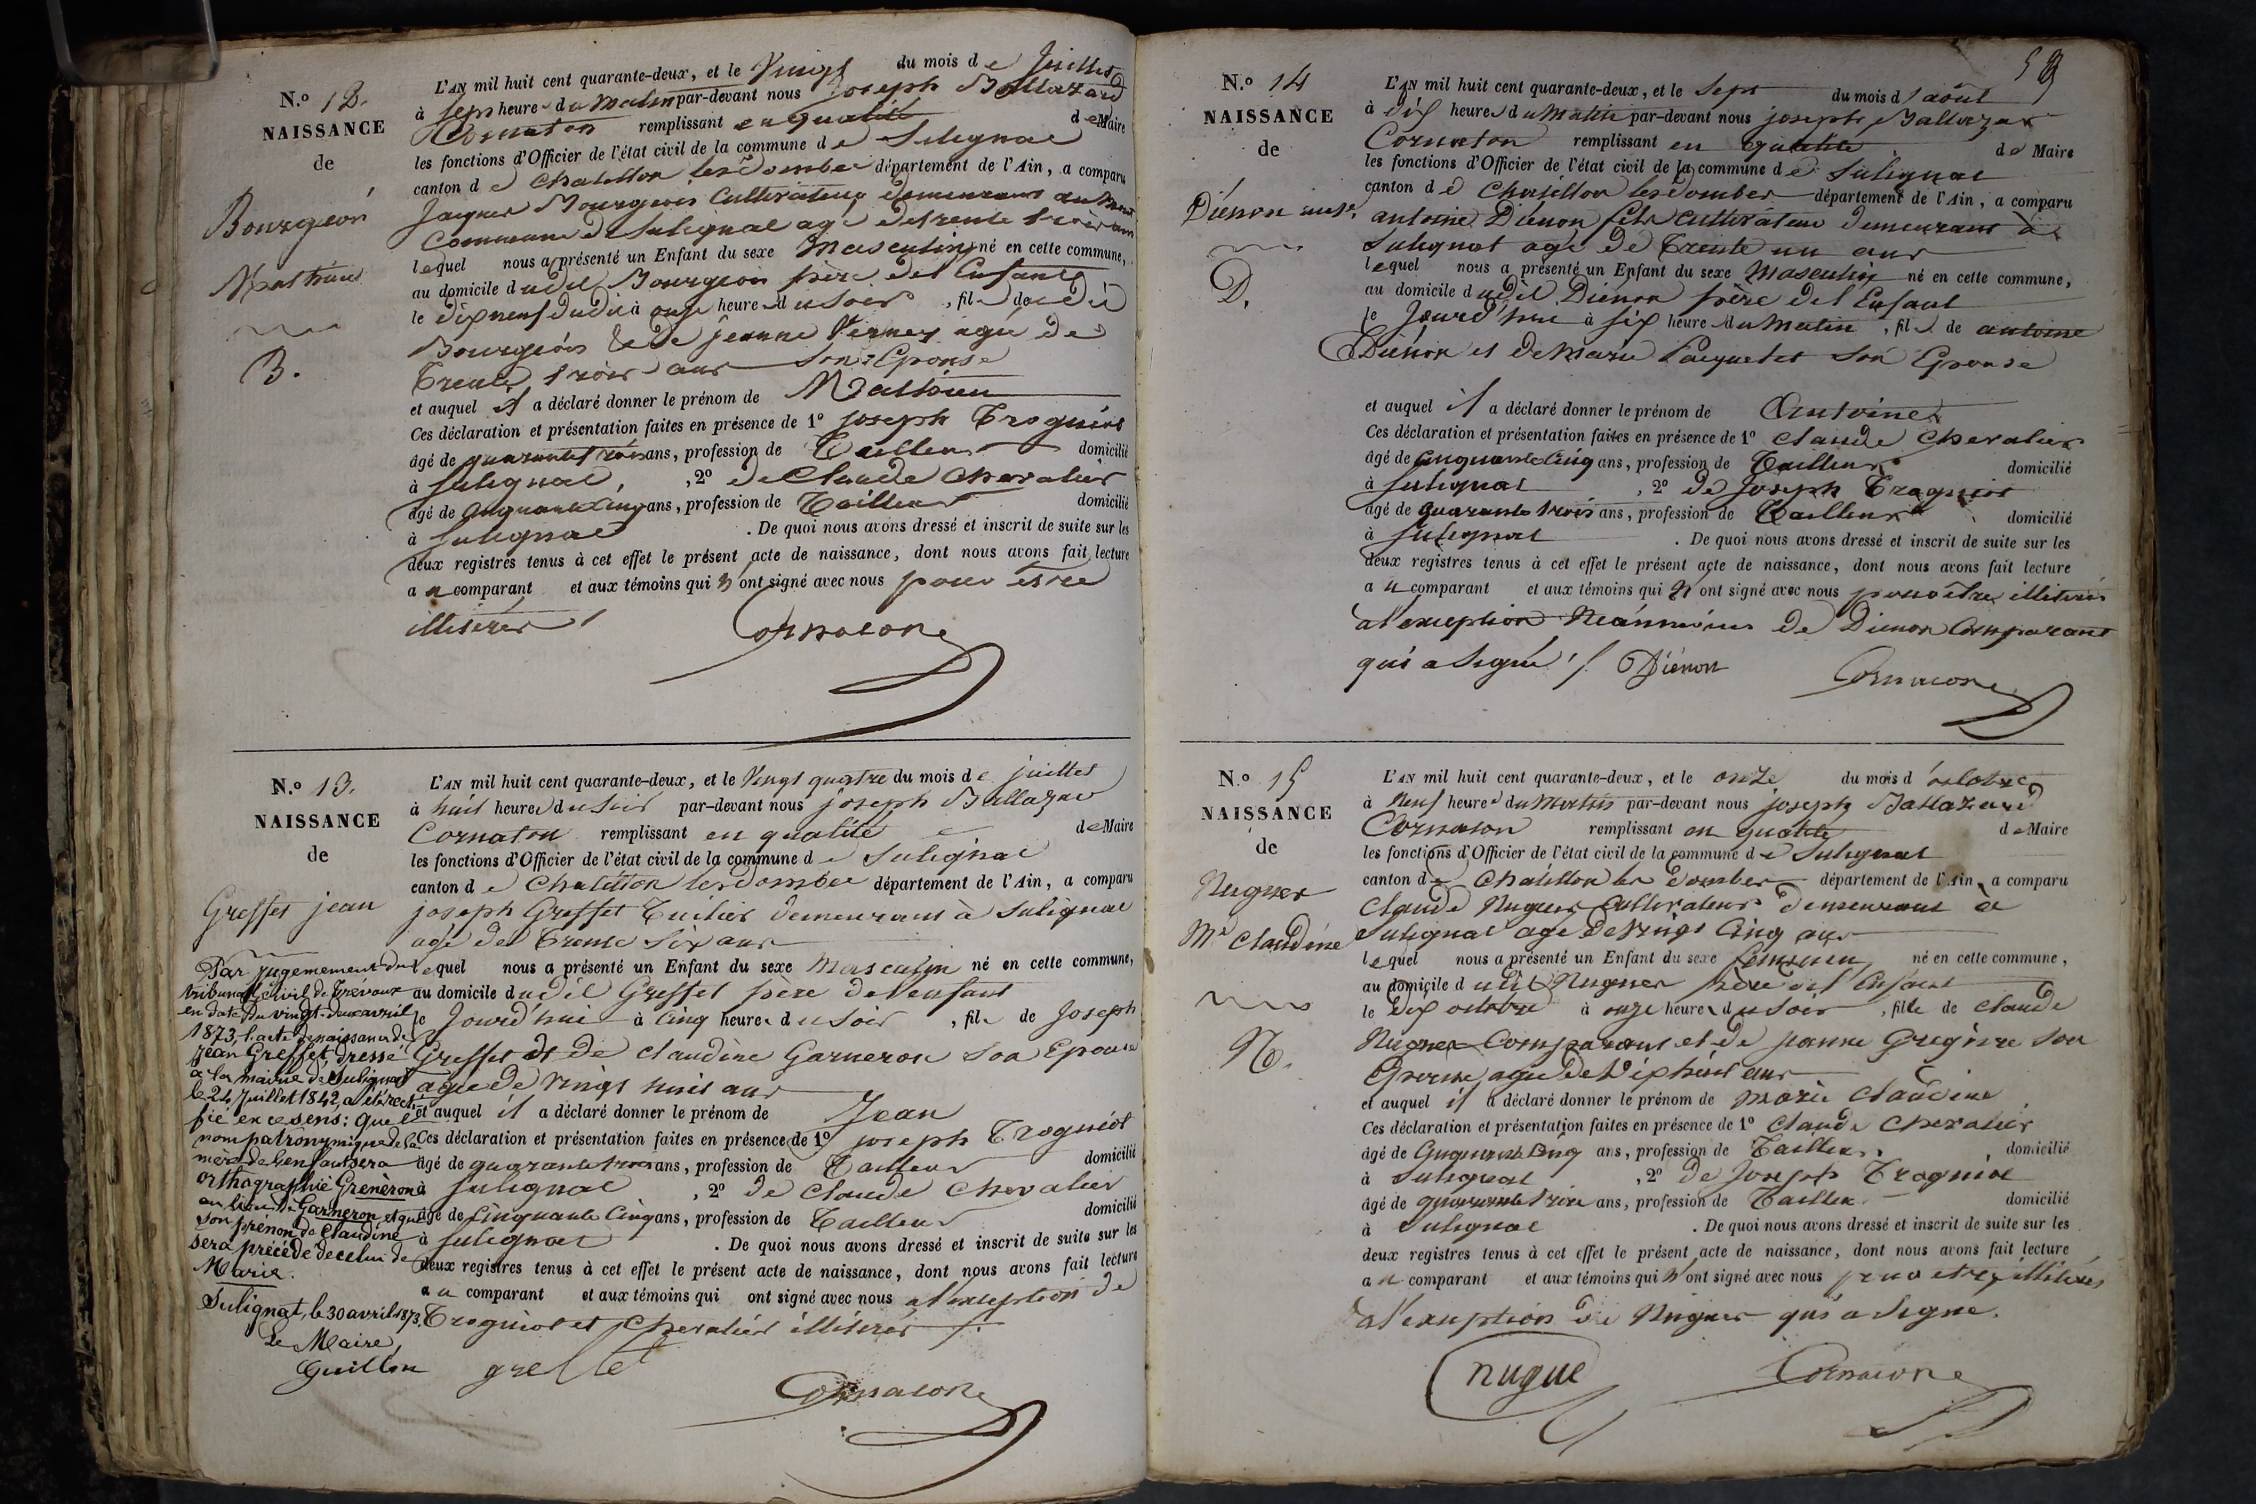 N.o 12.
NAISSANCE
de
Bourgeois
Mathieu
B.
L'AN mil huit cent quarante-deux, et le Vingt du mois de Juillet
à sept heure du Matin par-devant nous Joseph Baltazard
Cornaton remplissant en qualité de Maire
les fonctions d'Officier de l'état civil de la commune de Sulignat
canton de Chatillon les Dombes département de l'Ain, a comparu
Jacques Bourgeois Cultivateur demeurant au
Commune de Sulignat agé de trente trois ans
lequel nous a présenté un Enfant du sexe Masculin né en cette commune,
au domicile dudit Bourgeois père de l'Enfant
le dixneuf dudit à onze heure du soir, fils de dudit
Bourgeois & de jeanne Verney agée de
Trente trois ans son Epouse
et auquel il a déclaré donner le prénom de Mathieu
Ces déclaration et présentation faites en présence de 1o joseph Troguiot
âgé de quarante trois ans, profession de Tailleur domicilié
à Sulignat, 2o de Claude Chevalier
âgé de cinquante Cinq ans, profession de Tailleur domicilié
à Sulignat . De quoi nous avons dressé et inscrit de suite sur les
deux registres tenus à cet effet le présent acte de naissance, dont nous avons fait lecture
au comparant et aux témoins qui n ont signé avec nous pour être
illitérés /
Cornatone
N.o 13.
NAISSANCE
de
Greffet jean
Par jugemement du
tribunal civil de Trevoux
en date du vingt-deux avril
1873, l'acte de naissance de
Jean Greffet, dressé
à la mairie de Sulignat
le 24 Juillet 1842, a été recti-
fié en ce sens: que le
nom patronymique de la
mère de l'enfant sera
orthographié Grenèron
au lieu de Garneron, et que
son prénom de Claudine
sera précédé de celui de
Marie.
Sulignat, le 30 avril 1873.
Le Maire,
Guillon
L'AN mil huit cent quarante-deux, et le Vingt quatre du mois de juillet
à huit heures du soir par-devant nous joseph Baltazar
Cornaton remplissant en qualité de Maire
les fonctions d'Officier de l'état civil de la commune de Sulignat
canton de Chatillon les Dombes département de l'Ain, a comparu
joseph Greffet Tuilier demeurant à Sulignat
agé de Trente Six ans
lequel nous a présenté un Enfant du sexe Masculin né en cette commune,
au domicile dudit Greffet père de l'enfant
le Jourd'hui à Cinq heures du soir, fils de Joseph
Greffet et de claudine Garneron son Epouse
agée de vingt huit ans
et auquel il a déclaré donner le prénom de Jean
Ces déclaration et présentation faites en présence de 1o joseph Troguiot
âgé de quarante trois ans, profession de Tailleur domicilié
à Sulignat, 2o de Claude Chevalier
âgé de Cinquante Cinq ans, profession de Tailleur domicilié
à Sulignat . De quoi nous avons dressé et inscrit de suite sur les
deux registres tenus à cet effet le présent acte de naissance, dont nous avons fait lecture
au comparant et aux témoins qui ont signé avec nous a l'exception de
Troguiot et Chevalier illitérés /.
greffet
Cornatone
N.o 14
NAISSANCE
de
Diénon
D.
59
L'AN mil huit cent quarante-deux, et le Sept du mois d'août
à Six heures du Matin par-devant nous joseph Baltazar
Cornaton remplissant en qualité de Maire
les fonctions d'Officier de l'état civil de la commune de Sulignat
canton de Chatillon les Dombes département de l'Ain, a comparu
antoine Diénon fils cultivateur demeurant à
Sulignat agé de Trente un ans
lequel nous a présenté un Enfant du sexe Masculin né en cette commune,
au domicile dudit Diénon père de l'Enfant
le Jourd'hui à six heure du Matin, fils de antoine
Diénon et de Marie Paquetet son Epouse
et auquel il a déclaré donner le prénom de Antoine
Ces déclaration et présentation faites en présence de 1o Claude Chevalier
âgé de Cinquante Cinq ans, profession de Tailleur domicilié
à Sulignat, 2o de Joseph Troguiot
âgé de quarante trois ans, profession de Tailleur domicilié
à Sulignat . De quoi nous avons dressé et inscrit de suite sur les
deux registres tenus à cet effet le présent acte de naissance, dont nous avons fait lecture
au comparant et aux témoins qui N'ont signé avec nous pour être illitérés
a l'exception Néanmoins de Diénon Comparant
qui a Signé / Diénon
Cornatone
N.o 15
NAISSANCE
de
Nuguer
Me Claudine
N.
L'AN mil huit cent quarante-deux, et le onze du mois d'octobre
à Neuf heures du Matin par-devant nous joseph Baltazard
Cornaton remplissant en qualité de Maire
les fonctions d'Officier de l'état civil de la commune de Sulignat
canton de Chatillon les Dombes département de l'Ain, a comparu
Claude Nuguer Cultivateur demeurant à
Sulignat agé de vingt Cinq ans
lequel nous a présenté un Enfant du sexe féminin né en cette commune,
au domicile dudit Nuguer père de l'Enfant
le Dix octobre à onze heures du soir, fille de Claude
Nuguer Comparant et de jeanne Grégoire son
Epouse agée de Vingt huit ans
et auquel il a déclaré donner le prénom de Marie Claudine
Ces déclaration et présentation faites en présence de 1o Claude Chevalier
âgé de Cinquante Cinq ans, profession de Tailleur domicilié
à Sulignat, 2o de Joseph Troguiot
âgé de quarante trois ans, profession de Tailleur domicilié
à Sulignat . De quoi nous avons dressé et inscrit de suite sur les
deux registres tenus à cet effet le présent acte de naissance, dont nous avons fait lecture
au comparant et aux témoins qui N'ont signé avec nous pour etre illitérés
a l'exception de Nuguer qui a Signé.
nugue
Cornatone